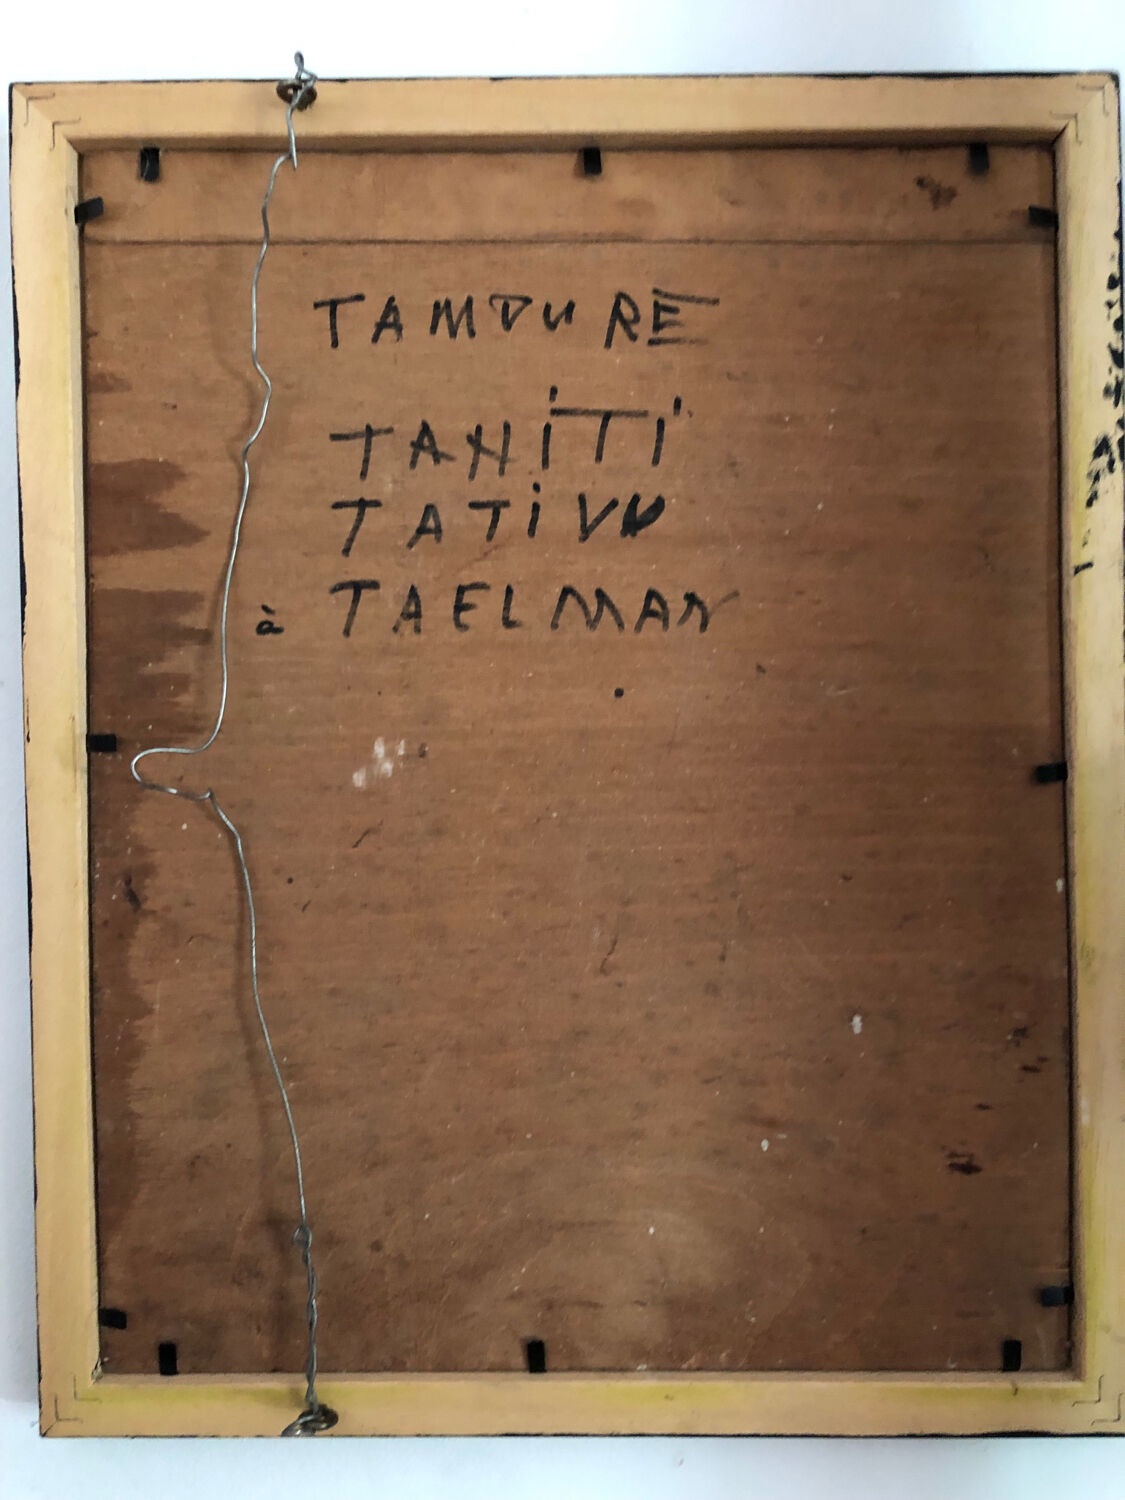 TAMOURÉ
TAHITI
TATIVU
à TAELMAN